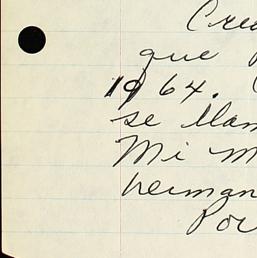 Cree
que
1964.
se llam
Mi m
herman
Por